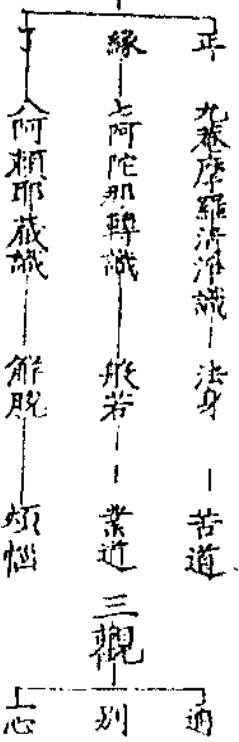 正 九菴摩羅清淨識 法身 苦道
緣 七阿陀那轉識 般若 業道
了 八阿頼耶蔵識 解脱 煩惱
三觀
通
別